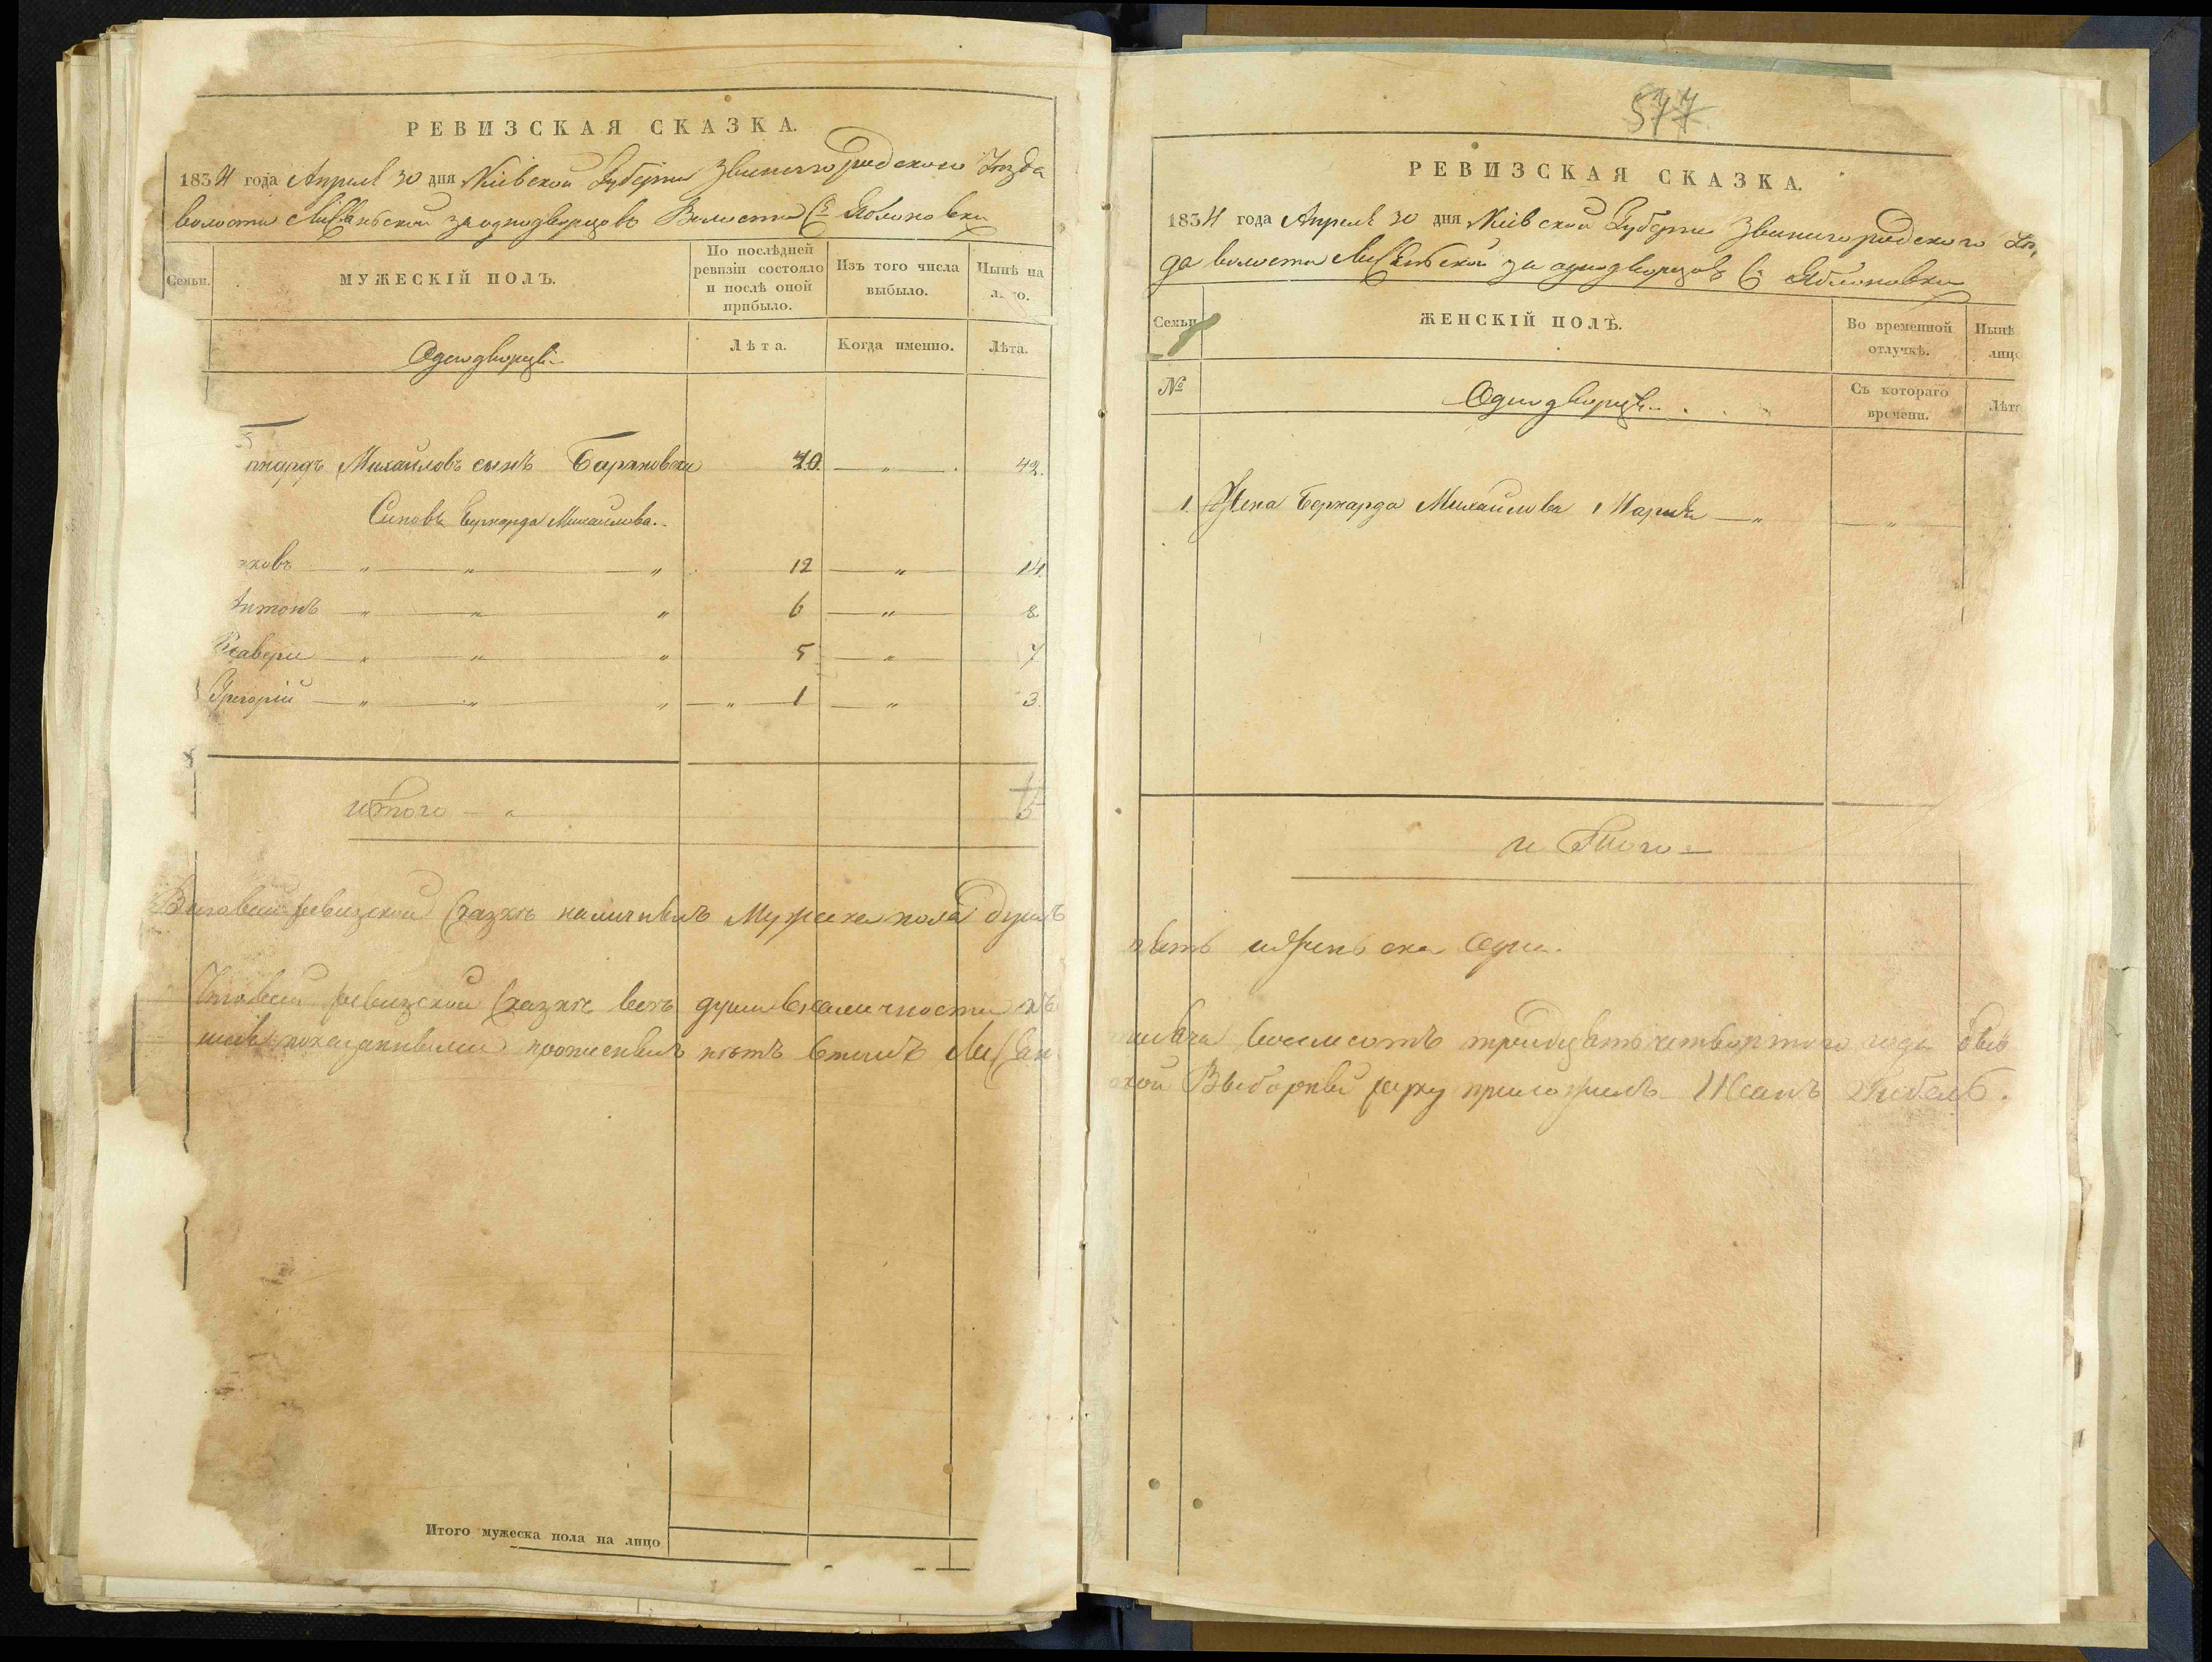 РЕВИЗСКАЯ СКАЗКА.
1834 года Апреля 30 дня Кіевской Губерніи Звенигородского Уезда
волости Лисянской за однодворцовъ Волости Сѣ Яблоновки
Семьи.
МУЖЕСКІЙ ПОЛЪ.
По послѣдней ревизіи состояло и послѣ оной прибыло.
Изъ того числа выбыло.
Нынѣ на
Однодворцы
Лѣта.
Когда именно.
Лѣта.
Михайловъ сынъ Барановски 40 — " — 42.
Синовъ Бернарда Михайлова..
ковъ — " — " — " 12 — " — 14
Антонъ — " — " — " 6 — " — 8
Ксавери — " — " — " 5 — " — 7
Григорій — " — " — " — " — 1 — " — 3.
итого — " 5
ревизской сказкѣ наличныхъ Мужеска пола душъ
ревизской сказкѣ всѣ души вналичности
показанными прописныхъ нѣтъ втомъ
Итого мужеска пола на лицо
577
РЕВИЗСКАЯ СКАЗКА.
1834 года Апреля 30 дня Кіевской Губерніи Звенигородского Уез
да волости Лисянской за однодворцовъ Сѣ Яблоновки
Семьи
ЖЕНСКІЙ ПОЛЪ.
Во временной отлучкѣ.
Нынѣ
лицо
№
Однодворцы
Съ котораго времени.
Лѣта
1. Жена Бернарда Михайлова Марія — " — " —
и того —
пять иженска одна.
восемсотъ тридцать четвертого года
Выборный руку приложилъ